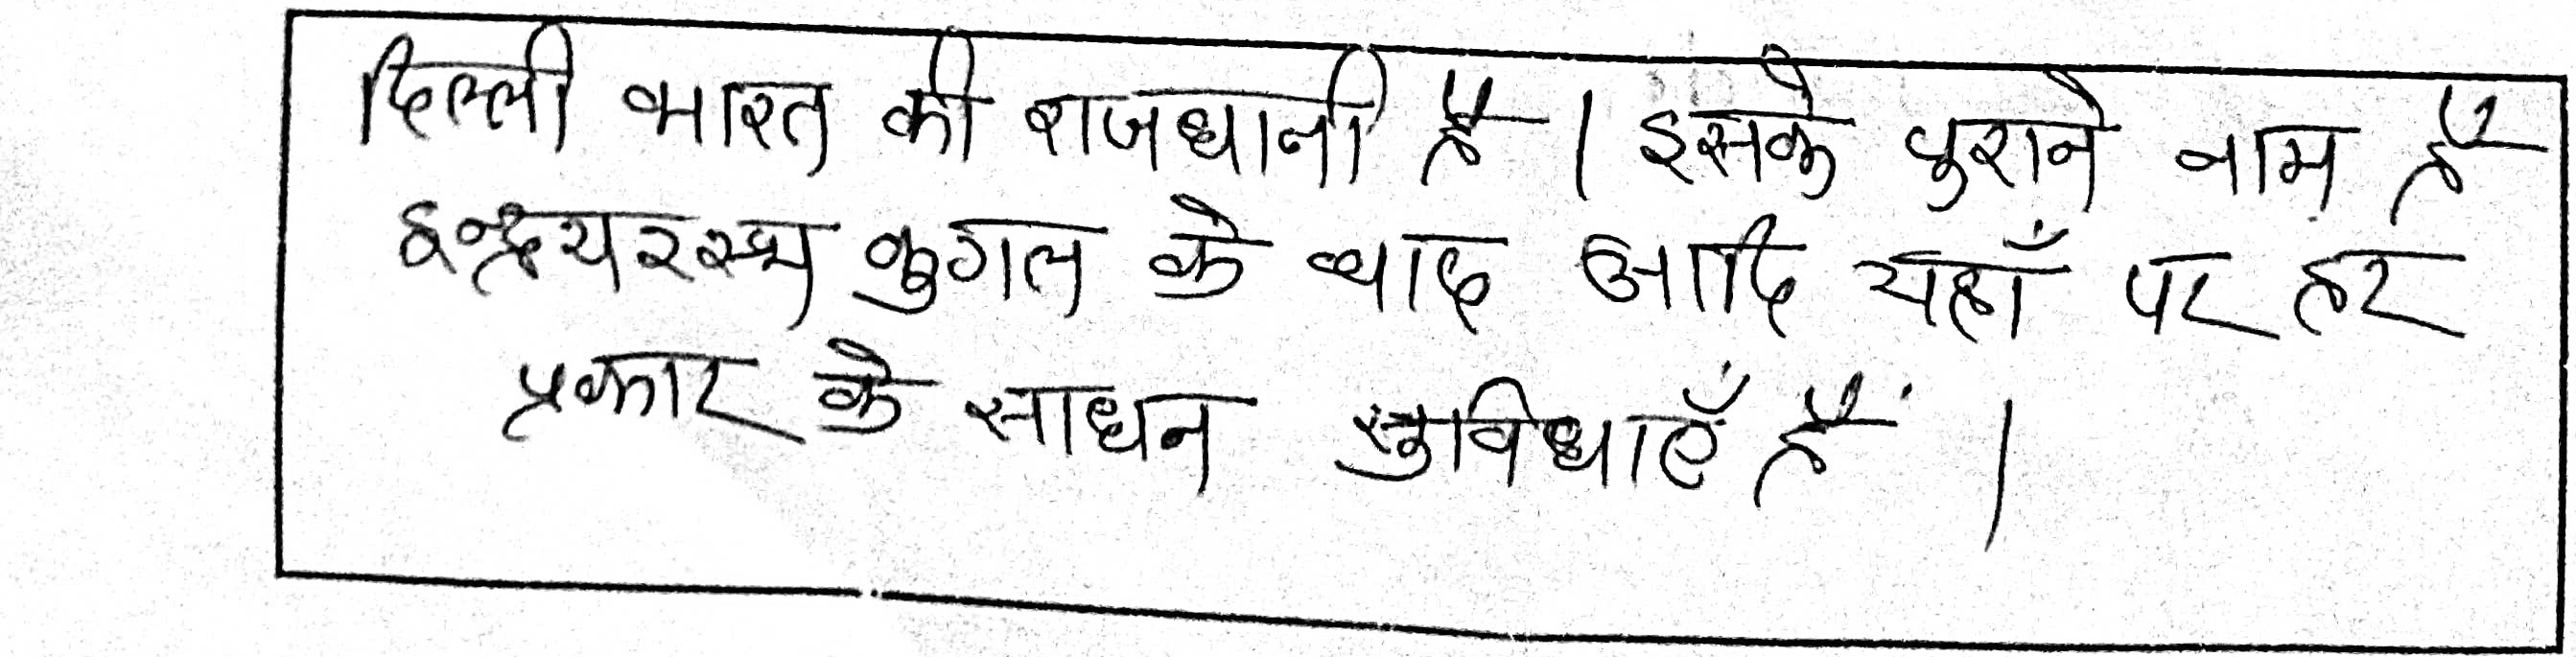 दिल्ली भारत की राजधानी है । इसके पुराने नाम है
इन्द्रयरस्थ मुगल के बाद आदि यहाँ पर हर
प्रकार के साधन सुविधाएँ हैं ।